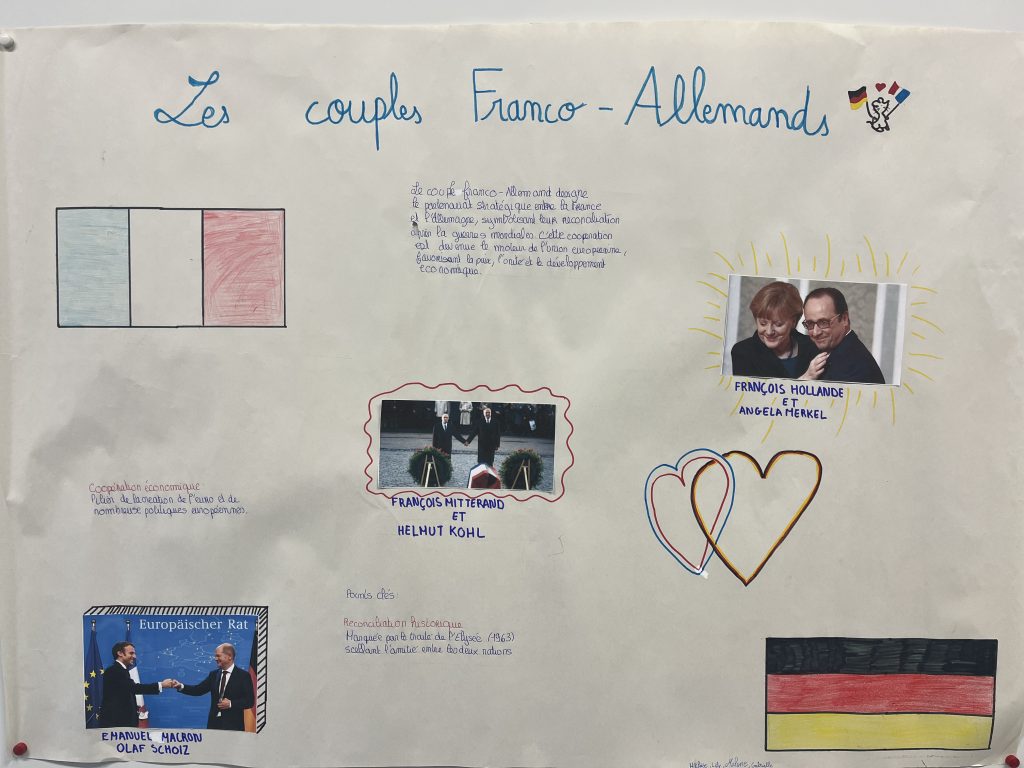 Les couples Franco-Allemands
Le couple franco-Allemand designe
le partenariat stratégique entre la France
et l'Allemagne, symbolisant leur reconciliation
après la guerres mondiales. Cette cooperation
est devenue le moteur de l'union européenne,
favorisant la paix, l'unité et le développement
economique.
FRANÇOIS HOLLANDE
ET
ANGELA MERKEL
FRANÇOIS MITTERAND
ET
HELMUT KOHL
Coopération économique
Pilier de la creation de l'euro et de
nombreuse politiques européennes.
Points clés:
Reconciliation historique
Marquée par le traité de l'Elysée (1963)
scellant l'amitié entre les deux nations
Europäischer Rat
EMANUEL MACRON
OLAF SCHOLZ